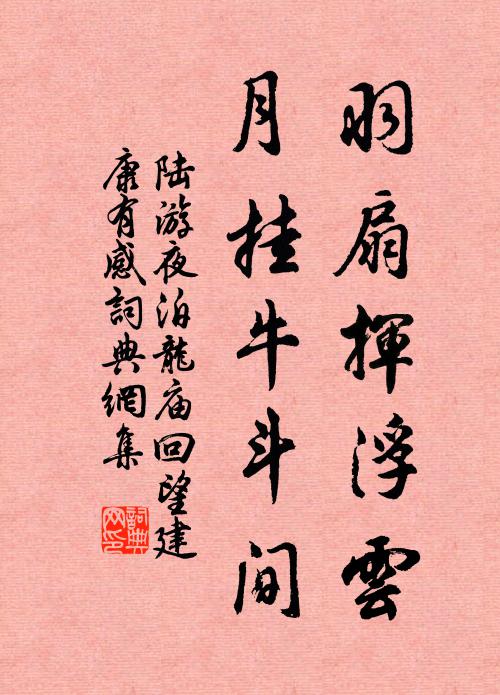 羽扇揮浮雲
月挂牛斗间
陆游夜泊龍庙回望建
康有感詞典網集
詞典网印